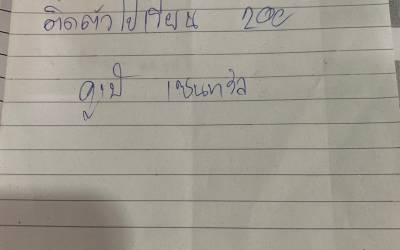 ติดตัวไปเรียน 200
ดูเป้ เซนทรัล